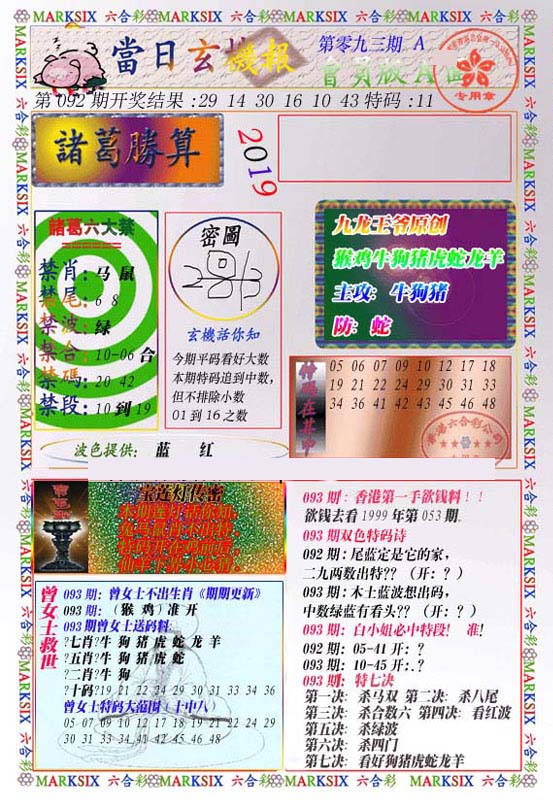 MARKSIX 六合彩 MARKSIX 六合彩 MARKSIX 六合彩 MARKSIX 六合彩
當日玄機报
第零九三期 A
會員版A面
专用章
第 092 期开奖结果 :29 14 30 16 10 43 特码 :11
諸葛勝算
2019
諸葛六大禁
禁肖: 马 鼠
禁尾: 6 8
禁波: 绿
禁合: 10-06 合
禁碼: 20 42
禁段: 10 到 19
密圖
玄機话你知
今期平码看好大数
本期特码追到中数,
但不排除小数
01 到 16 之数
九龙王爷原创
猴鸡牛狗猪虎蛇龙羊
主攻: 牛狗猪
防: 蛇
特碼在其中
05 06 07 09 10 12 17 18
19 21 22 24 29 30 31 33
34 36 41 42 43 45 46 48
波色提供: 蓝 红
宝莲灯传密
093 期: 香港第一手欲钱料!!
欲钱去看 1999 年第 053 期.
093 期双色特码诗
092 期: 尾蓝定是它的家,
二九两数出特?? (开: ?)
093 期: 木土蓝波想出码,
中数绿蓝有看头?? (开: ?)
093 期: 白小姐必中特段! 准!
092 期: 05-41 开: ?
093 期: 10-45 开: ?
093 期: 特七决
第一决: 杀马双 第二决: 杀八尾
第三决: 杀合数六 第四决: 看红波
第五决: 杀绿波
第六决: 杀四门
第七决: 看好狗猪虎蛇龙羊
曾女士救世
093 期: 曾女士不出生肖《期期更新》
093 期: (猴 鸡) 准 开
093 期曾女士送码料:
?七肖?牛 狗 猪 虎 蛇 龙 羊
?五肖?牛 狗 猪 虎 蛇
?二肖?牛 狗
?十码?19 21 22 24 29 30 31 33 34 36
曾女士特码大范围 (十中八)
05 07 09 10 12 17 18 19 21 22 24 29
30 31 33 34 41 42 45 46 48
MARKSIX 六合彩 MARKSIX 六合彩 MARKSIX 六合彩 MARKSIX 六合彩